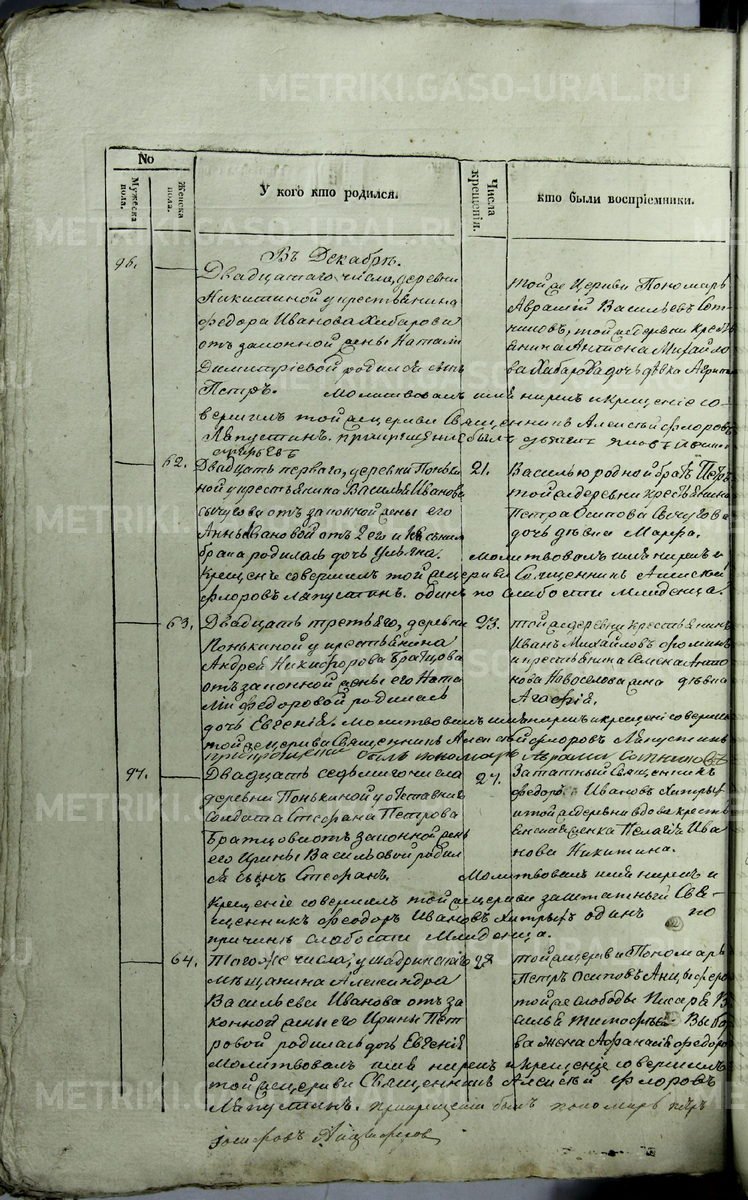 METRIKI.GASO-URAL.RU
No
Мужеска пола.
Женска пола.
У кого кто родился.
Числа крещенія.
кто были воспріемники.
Въ Декабрѣ.
96.
Двадцатаго числа, деревни
Никитиной у крестьянина
Федора Иванова Хибарова
отъ законной жены Натальи
Димитріевой родился сынъ
Петръ. Молитвовалъ имя нарекъ и крещеніе со-
вершилъ тойже церкви Священникъ Алексѣй Флоровъ
Лапустинъ. при крещеніи былъ
тойже Церкви Пономарь
Авраамій Васильевъ Сот-
никовъ, тойже деревни крест
янина Антона Михайло
ва Хибарова дочь дѣвка
62.
Двадцать перваго, деревни Поньки
ной у крестьянина Василья Иванова
Сычугова отъ законной жены его
Анны Ивановой отъ 2го
брака родилась дочь Ульяна. Молитвовалъ имя нарекъ и
Крещеніе совершилъ тойже церкви Священникъ Алексѣй
Флоровъ Лапустинъ. одинъ по слабости младенца.
21.
Василью родной братъ Петръ
тойже деревни крестьянина
Петра Осипова Сычугова
дочь дѣвка Марфа.
63.
Двадцать третьяго, деревни
Понькиной у крестьянина
Андрей Никифорова Братцова
отъ законной жены его Ната
льи Федоровой родилась
дочь Евгенія. Молитвовалъ имя нарекъ и крещеніе соверши
тойже церкви Священникъ Алексѣй Флоровъ Лапустинъ
при крещеніи былъ пономарь Авраамъ Сотниковъ
23.
тойже деревни крестьянинъ
Иванъ Михайловъ Фоминъ
и крестьянина Семена Анто
нова Новоселова жена дѣвка
Агафія.
97.
Двадцать седьмаго числа
деревни Понькиной у отставнаго
Солдата Стефана Петрова
Братцова отъ законной жены
его Ирины Васильевой родил
ся сынъ Стефанъ. Молитвовалъ имя нарекъ и
Крещеніе совершилъ тойже церкви заштатный Свя-
щенникъ Феодоръ Ивановъ одинъ по
причинѣ слабости Младенца.
27.
Заштатный Священникъ
Федоръ Ивановъ
и тойже деревни вдова крестья
Пелагѣя Ива
нова Никитина.
64.
Того же числа, у Шадринскаго
Мѣщанина Александра
Васильева Иванова отъ за
конной жены его Ирины Пет
ровой родилась дочь Евгенія
Молитвовалъ имя нарекъ и крещеніе совершилъ
тойже церкви Священникъ Алексѣй Флоровъ
Лапустинъ. при крещеніи былъ пономарь Петръ
Іосифовъ Анцыферовъ
28
тойже церкви Пономарь
Петръ Осиповъ Анцыферо
тойже слободы Писаря В
асилья Тимофѣева
ва жена Афанасія Федоро